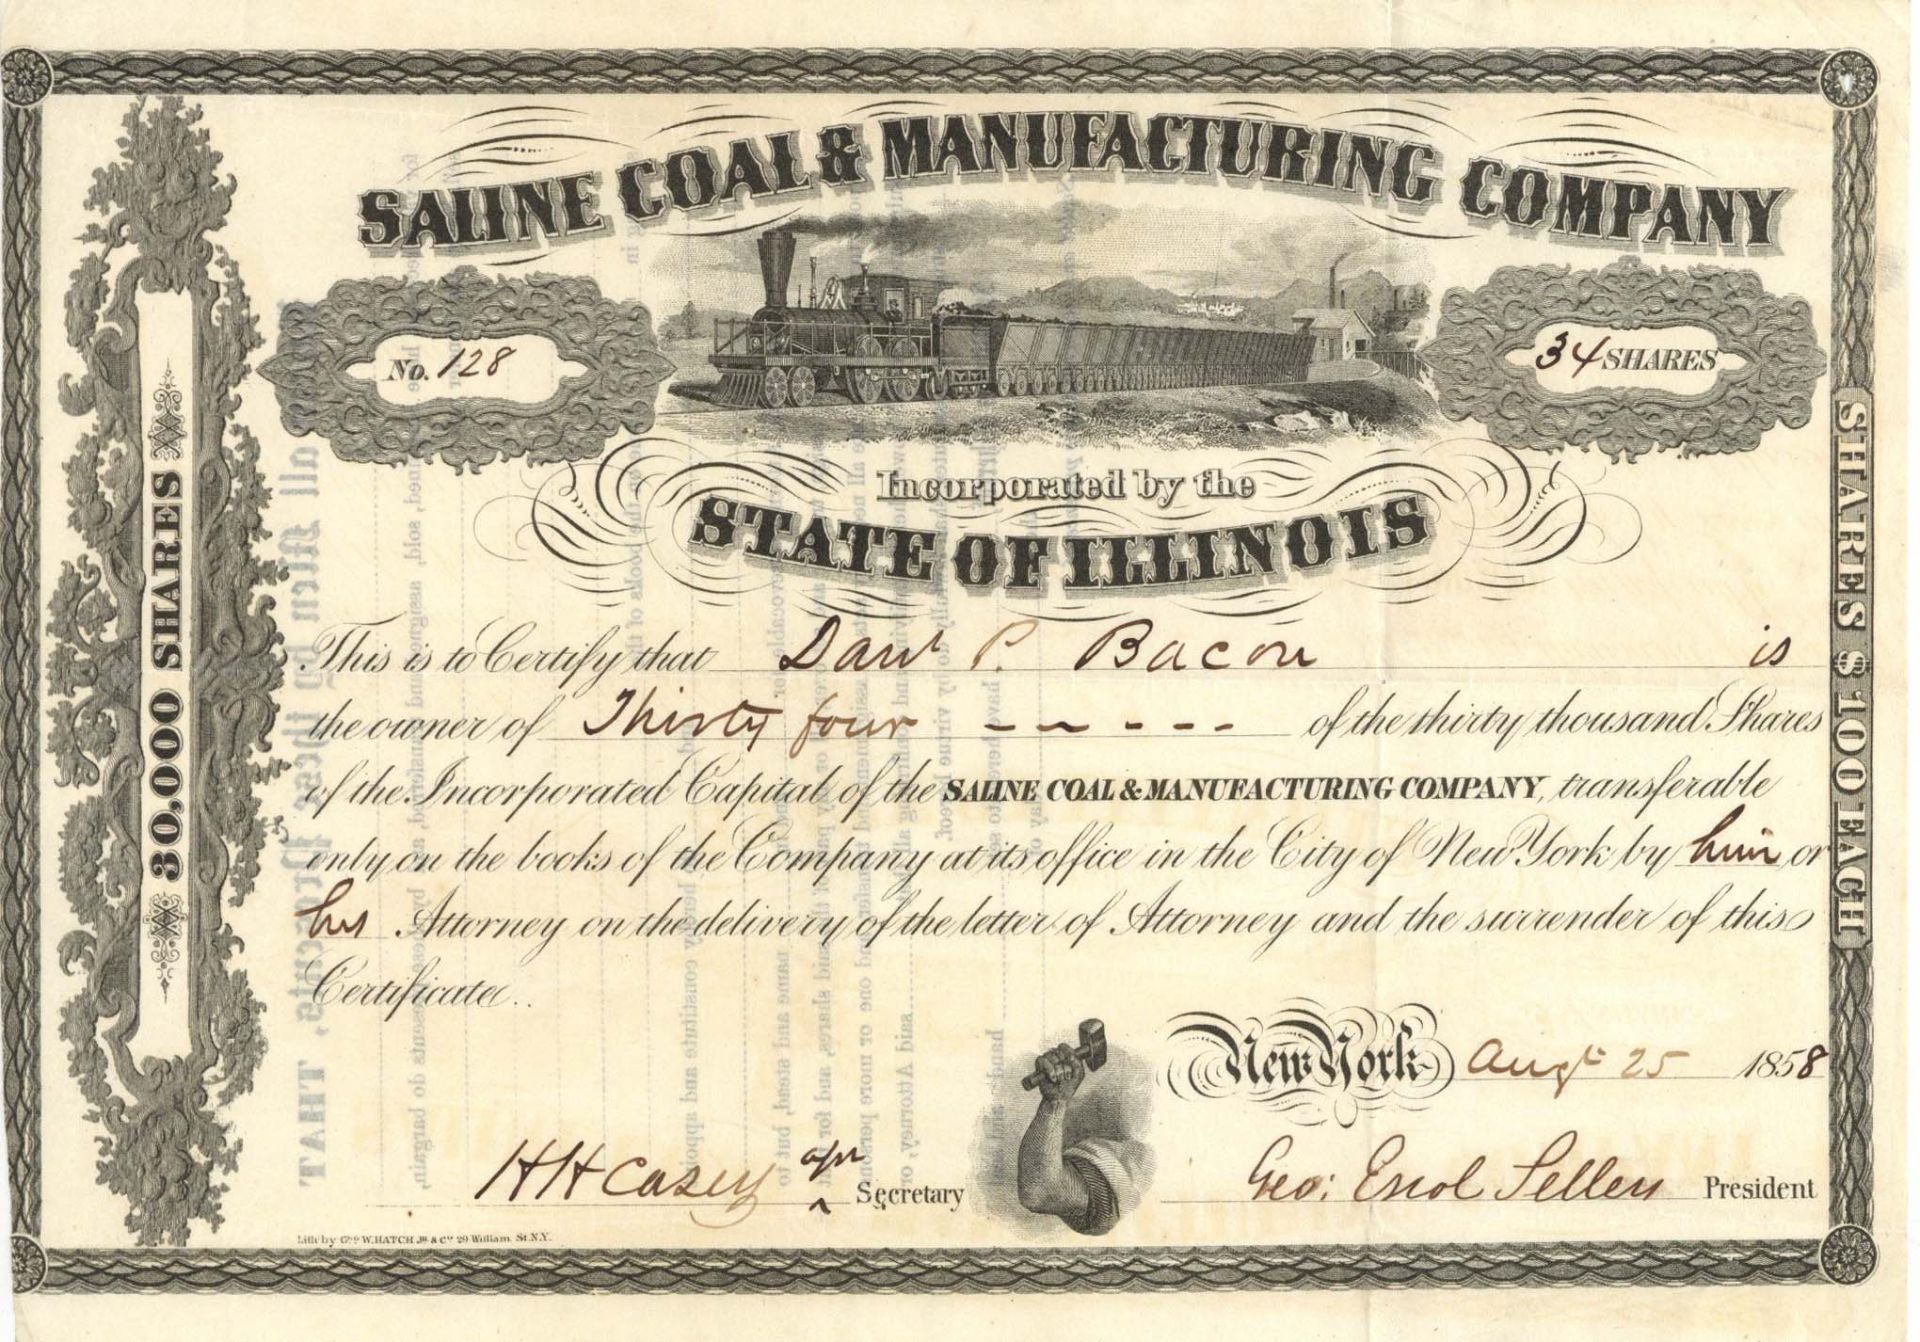 SALINE COAL & MANUFACTURING COMPANY
No. 128
34 SHARES
Incorporated by the
STATE OF ILLINOIS
30,000 SHARES
SHARES $100 EACH
This is to Certify that Danl P. Bacon is
the owner of Thirty four - - - - - of the thirty thousand Shares
of the Incorporated Capital of the SALINE COAL & MANUFACTURING COMPANY, transferable
only on the books of the Company at its office in the City of New York by him or
his Attorney on the delivery of the letter of Attorney and the surrender of this
Certificate..
New York Augt 25 1858
HH Casey Secretary
Geo: Escol Sellers President
Lith by Geo W. HATCH Jr & Co 29 William St N.Y.